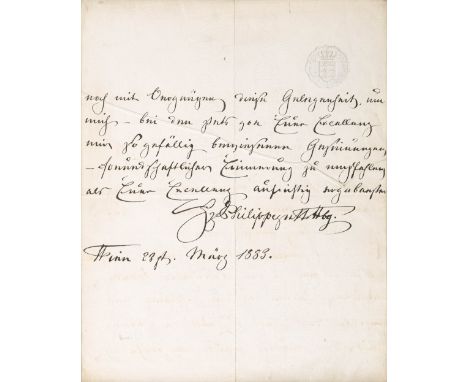 noch mit Vergnügen diese Gelegenheit, um
mich – bei den stets von Euer Excellenz
mir so gefällig bewiesenen Gesinnungen,
– freundschaftlicher Erinnerung zu empfehlen
als Euer Excellenz aufrichtig ergebenster
Philipp
Wien 29t. März 1883.